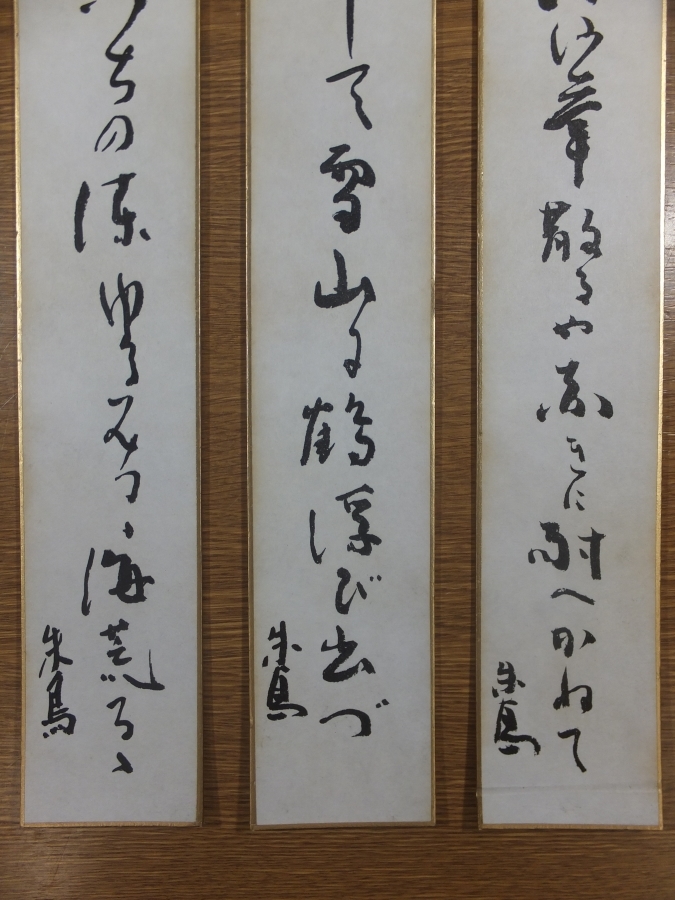 沙華散るや赤きに耐へかねて
朱鳥
して雪山に鶴浮び出づ
朱鳥
ちの凍ゆるみつゝ海荒るゝ
朱鳥